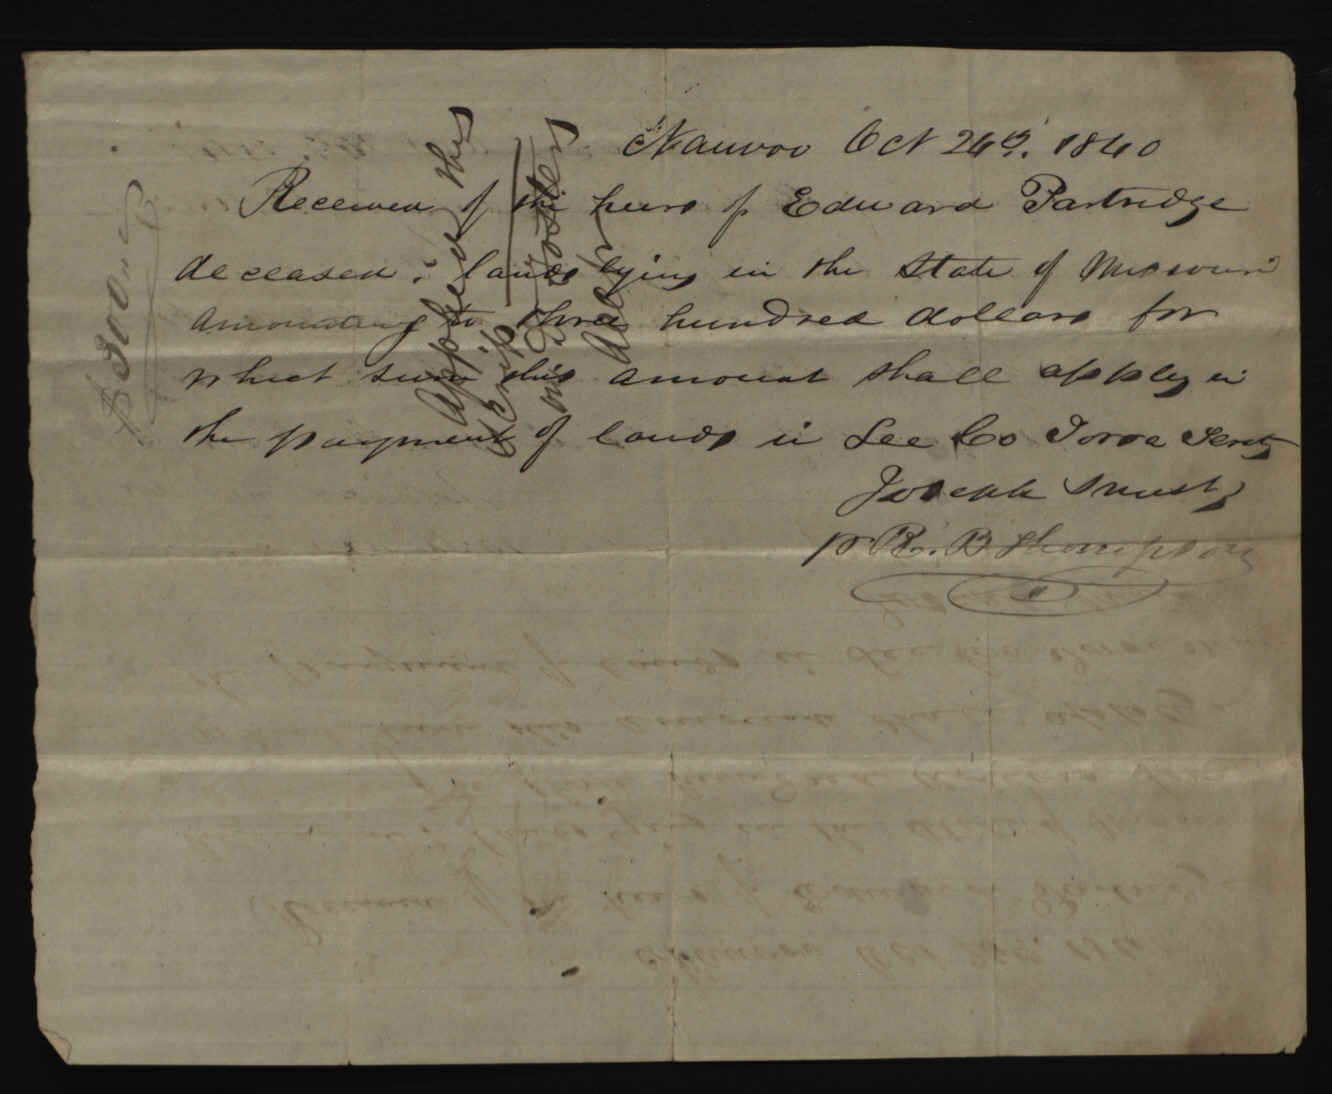 Nauvoo Oct 24th. 1840
Received of the heirs of Edward Partridge
deceased. lands lying in the State of Missouri
amounting to three hundred dollars for
which sum this amount shall apply in
the payment of lands in Lee Co Iowa Terty
Joseph Smith
pr R. B Thompson
$300
applied this
Scrip
on Fosters